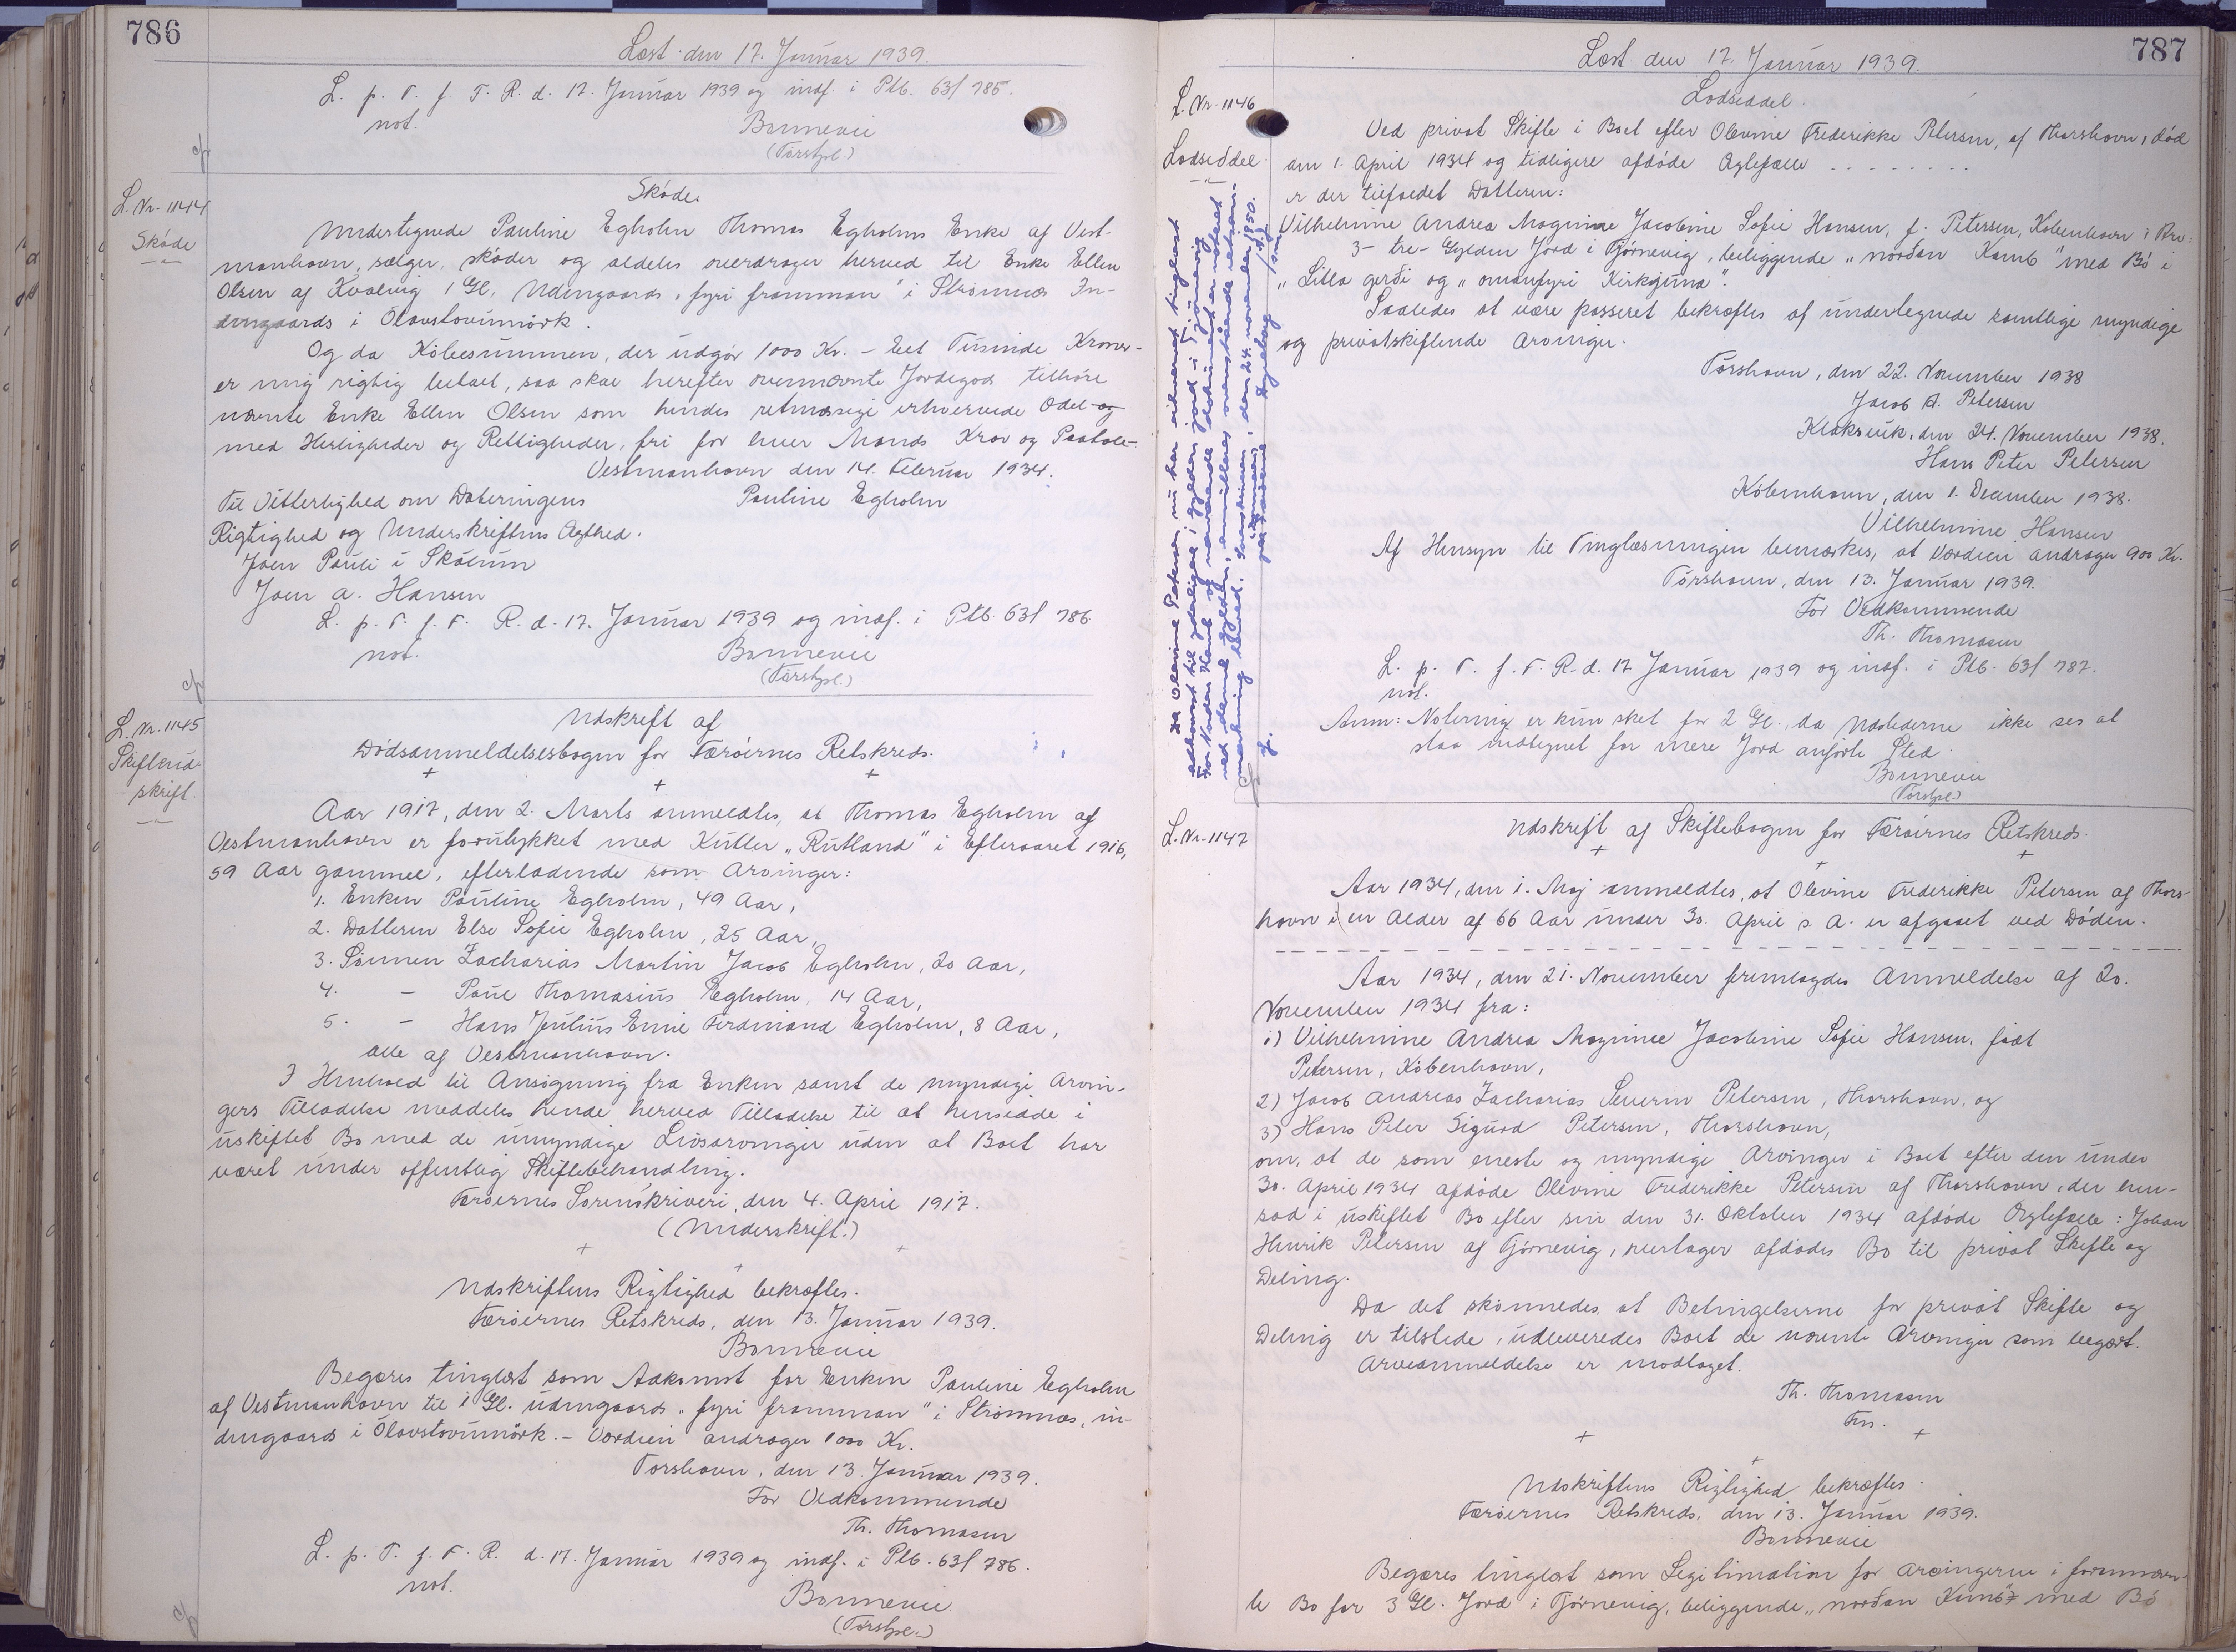 786
Læst den 17. Januar 1939.
L. p. T. f. F. R. d. 17. Januar 1939 og indf. i Ptb. 63/785.
not.
Bonnevie
(Forstpl.)
L. Nr. 1144
Skøde
Skøde.
Undertegnede Pauline Egholm Thomas Egholms Enke af Vest-
manhavn, sælger, skøder og aldeles overdrager herved til Enke Ellen
Olsen af Kvalvig 1 Gl. Udengaards "fyri framman" i Strømnæs In-
dengaards i Olavstovumørk.
Og da Købesummen, der udgør 1000 Kr. - Eet Tusinde Kroner -
er mig rigtig betalt, saa skal herefter ovennævnte Jordegods tilhøre
nævnte Enke Ellen Olsen som hendes retmæssige erhvervede Odel og
med Herligheder og Rettigheder, fri for hver Mands Krav og Paatale.
Vestmanhavn den 14. Februar 1934.
Til Vitterlighed om Dateringens
Pauline Egholm
Rigtighed og Underskriftens Ægthed.
Joen Pauli i Skálum
Joen A. Hansen
L. p. T. f. F. R. d. 17. Januar 1939 og indf. i Ptb. 63/786.
not.
Bonnevie
(Forstpl.)
L. Nr. 1145
Skifteud-
skrift.
Udskrift af
Dødsanmeldelsesbogen for Færøernes Retskreds.
Aar 1917, den 2. Marts anmeldtes, at Thomas Egholm af
Vestmanhavn er forulykket med Kutter "Rutland" i Efteraaret 1916,
59 Aar gammel, efterladende som Arvinger:
1. Enken Pauline Egholm, 49 Aar,
2. Datteren Else Sofie Egholm, 25 Aar,
3. Sønnen Zacharias Martin Jacob Egholm, 20 Aar,
4. - Poul Thomasius Egholm, 14 Aar,
5. - Hans Julius Emil Ferdinand Egholm, 8 Aar,
alle af Vestmanhavn.
I Henhold til Ansøgning fra Enken samt de myndige Arvin-
gers Tilladelse meddeles hende herved Tilladelse til at hensidde i
uskiftet Bo med de umyndige Livsarvinger uden at Boet har
været under offentlig Skiftebehandling.
Færøernes Sorenskriveri, den 4. April 1917.
(Underskrift.)
Udskriftens Rigtighed bekræftes.
Færøernes Retskreds, den 13. Januar 1939.
Bonnevie
Begæres tinglæst som Adkomst for Enken Pauline Egholm
af Vestmanhavn til 1 Gl. udengaards "fyri framman" i Strømnæs, in-
dengaards i Olavstovumørk. - Værdien andrager 1000 Kr.
Torshavn, den 13. Januar 1939.
For Vedkommende
Th. Thomasen
L. p. T. f. F. R. d. 17. Januar 1939 og indf. i Ptb. 63/786.
not.
Bonnevie
(Forstpl.)
787
Læst den 17. Januar 1939.
L. Nr. 1146
Lodseddel.
Lodseddel.
Ved privat Skifte i Boet efter Olevine Frederikke Petersen, af Thorshavn, død
den 1. April 1934 og tidligere afdøde Ægtefælle - - - - - - - -
er der tilfaldet Datteren:
Vilhelmine Andrea Magnine Jacobine Sofie Hansen, f. Petersen, København i Arv:
3 - tre - Gylden Jord i Tjørnevig, beliggende "nordan Kamb" med Bø i
"Litla gerði og "omanfyri Kirkjuna".
Saaledes at være passeret bekræftes af undertegnede samtlige myndige
og privatskiftende Arvinger.
Torshavn, den 22. November 1938
Jacob A. Petersen
Klaksvik, den 24. November 1938.
Hans Peter Petersen
København, den 1. December 1938.
Vilhelmine Hansen
Af Hensyn til Tinglæsningen bemærkes, at Værdien andrager 900 Kr.
Torshavn, den 13. Januar 1939.
For Vedkommende
Th. Thomasen
L. p. T. f. F. R. d. 17 Januar 1939 og indf. i Ptb. 63/787.
not.
Anm: Notering er kun sket for 2 Gl., da Udstederne ikke ses at
staa indtegnet for mere Jord anførte Sted.
Bonnevie
(Forstpl.)
Da Olevine Petersen nu har erhvervet tinglæst
adkomst til yderligere 1 gylden jord i Tjørnevig
"for Nordan Kamb" og nærværende dokument er noteret
ved denne gylden,
L. Nr. 1147
Udskrift af Skiftebogen for Færøernes Retskreds.
Aar 1934, den 1. Maj anmeldtes, at Olevine Frederikke Petersen af Thors-
havn i en Alder af 66 Aar under 30. April s. A. er afgaaet ved Døden.
Aar 1934, den 21. November fremlagdes Anmeldelse af 20.
November 1934 fra:
1) Vilhelmine Andrea Magnine Jacobine Sofie Hansen, født
Petersen, København,
2) Jacob Andreas Zacharias Severin Petersen, Thorshavn, og
3) Hans Peter Sigurd Petersen, Thorshavn,
om, at de som eneste og myndige Arvinger i Boet efter den under
30. April 1934 afdøde Olevine Frederikke Petersen af Thorshavn, der hen-
sad i uskiftet Bo efter sin den 31. Oktober 1934 afdøde Ægtefælle: Johan
Henrik Petersen af Tjørnevig, overtager afdødes Bo til privat Skifte og
Deling.
Da det skønnedes, at Betingelserne for privat Skifte og
Deling er tilstede, udleveredes Boet de nævnte Arvinger som begært.
Arveanmeldelse er modtaget.
Th. Thomasen
Fm.
Udskriftens Rigtighed bekræftes.
Færøernes Retskreds, den 13. Januar 1939.
Bonnevie
Begæres tinglæst som Legitimation for Arvingerne i fornævn-
te Bo for 3 Gl. Jord i Tjørnevig, beliggende "nordan Kamb" med Bø